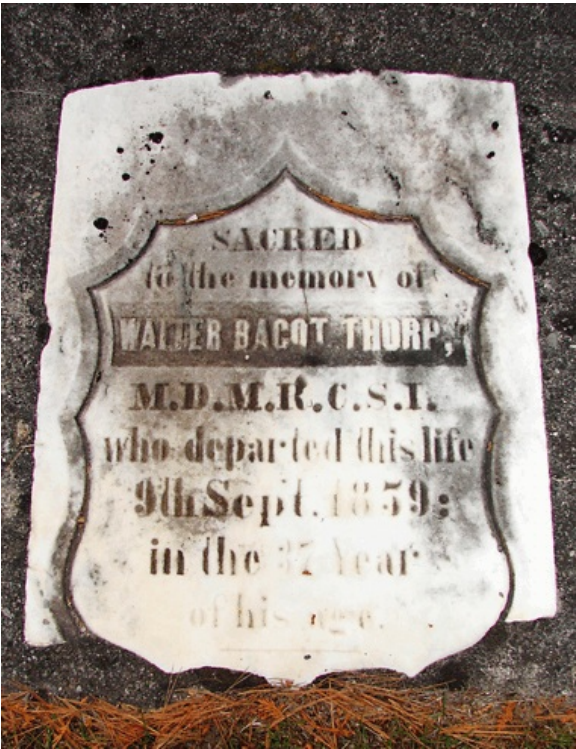 SACRED
to the memory of
WALTER BAGOT THORP,
M.D.M.R.C.S.I.
who departed this life
9th Sept. 1859:
in the 37 Year
of his age.